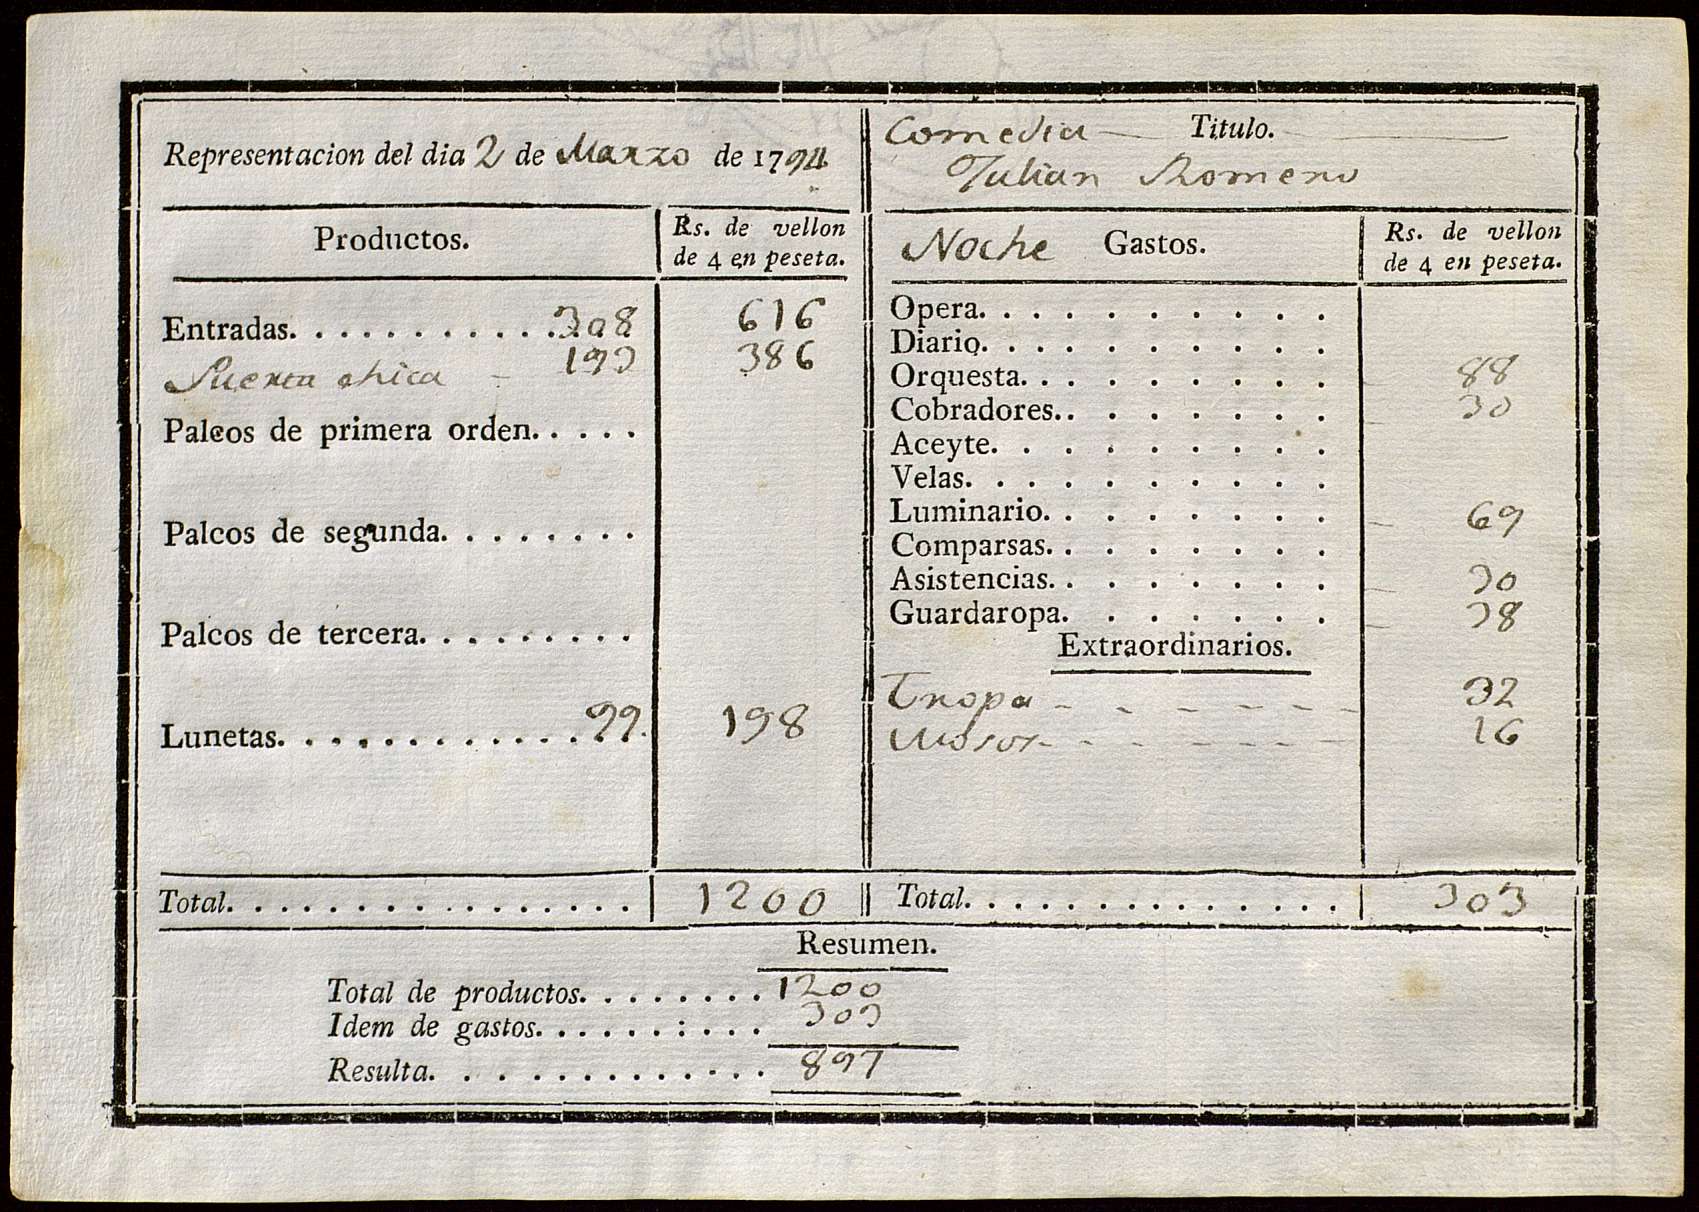 Representacion del dia 2 de Marzo de 1794
Productos. Rs. de vellon de 4 en peseta.
Entradas. 308 616
Puerta chica 193 386
Palcos de primera orden.
Palcos de segunda.
Palcos de tercera.
Lunetas. 99. 198
Total. 1200
Comedia Titulo.
Julian Romero
Noche Gastos. Rs. de vellon de 4 en peseta.
Opera.
Diario.
Orquesta. 88
Cobradores. 30
Aceyte.
Velas.
Luminario. 69
Comparsas.
Asistencias. 30
Guardaropa. 38
Extraordinarios.
Tropa 32
Mosos 16
Total. 303
Resumen.
Total de productos. 1200
Idem de gastos. 303
Resulta. 897